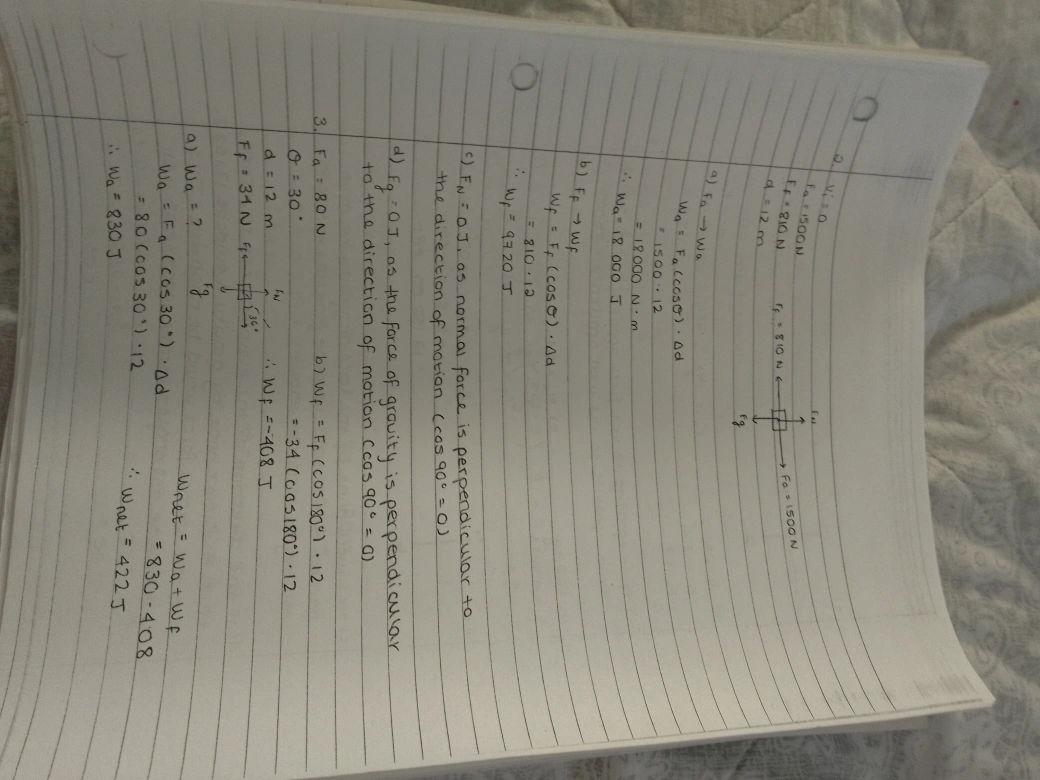 2.
Vi = 0
Fa = 1500N
Ff = 810 N
d = 12 m
FN
Ff = 810 N
Fa = 1500N
Fg
a) Fa → Wa
Wa = Fa (cosθ) · Δd
= 1500 · 12
= 18000 N · m
∴ Wa = 18 000 J
b) Ff → Wf
Wf = Ff (cosθ) · Δd
= 810 · 12
∴ Wf = 9720 J
c) FN = 0 J, as normal force is perpendicular to
the direction of motion (cos 90° = 0)
d) Fg = 0 J, as the force of gravity is perpendicular
to the direction of motion (cos 90° = 0)
3. Fa = 80 N
θ = 30°
d = 12 m
Ff = 34 N
FN
Ff
30°
Fg
a) Wa = ?
Wa = Fa (cos 30°) · Δd
= 80 (cos 30°) · 12
∴ Wa = 830 J
b) Wf = Ff (cos 180°) · 12
= -34 (cos 180°) · 12
∴ Wf = -408 J
Wnet = Wa + Wf
= 830 - 408
∴ Wnet = 422 J